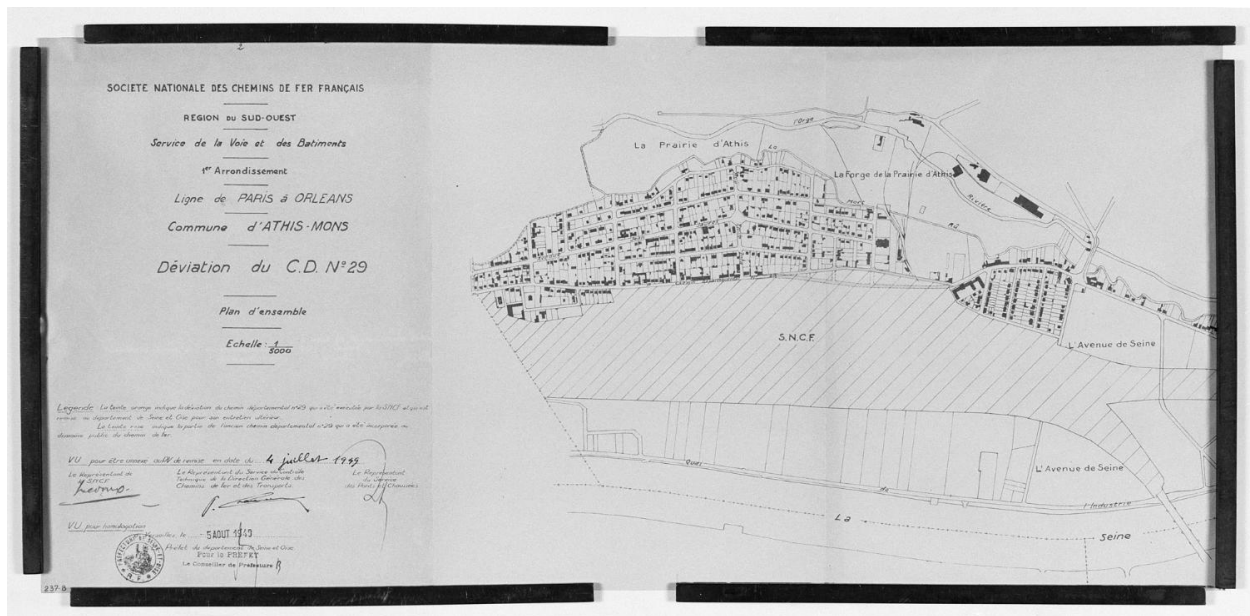 2
SOCIETE NATIONALE DES CHEMINS DE FER FRANÇAIS
REGION DU SUD-OUEST
Service de la Voie et des Batiments
1er Arrondissement
Ligne de PARIS à ORLEANS
Commune d'ATHIS-MONS
Déviation du C.D. N°29
Plan d'ensemble
Echelle: 1/5000
Legende: La teinte orange indique la déviation du chemin départemental n°29 qui a été exécutée par la SNCF et qui est
remise au département de Seine et Oise pour son entretien ultérieur.
La teinte rose indique la partie de l'ancien chemin départemental n°29 qui a été incorporée au
domaine public du chemin de fer.
VU pour être annexé au P.V. de remise en date du 4 juillet 1949
Le Représentant de
la SNCF
Le Représentant du Service de Contrôle
Technique de la Direction Générale des
Chemins de fer et des Transports
Le Représentant
du Service
des Ponts et Chaussées
VU pour homologation
Versailles, le 5 AOUT 1949
Préfet du département de Seine et Oise
Pour le PREFET
Le Conseiller de Préfecture
237-B
l'Orge
La Prairie d'Athis
La
La Forge de la Prairie d'Athis
Morte
Rivière
S.N.C.F.
L'Avenue de Seine
L'Avenue de Seine
Quai
de
l'Industrie
La
Seine